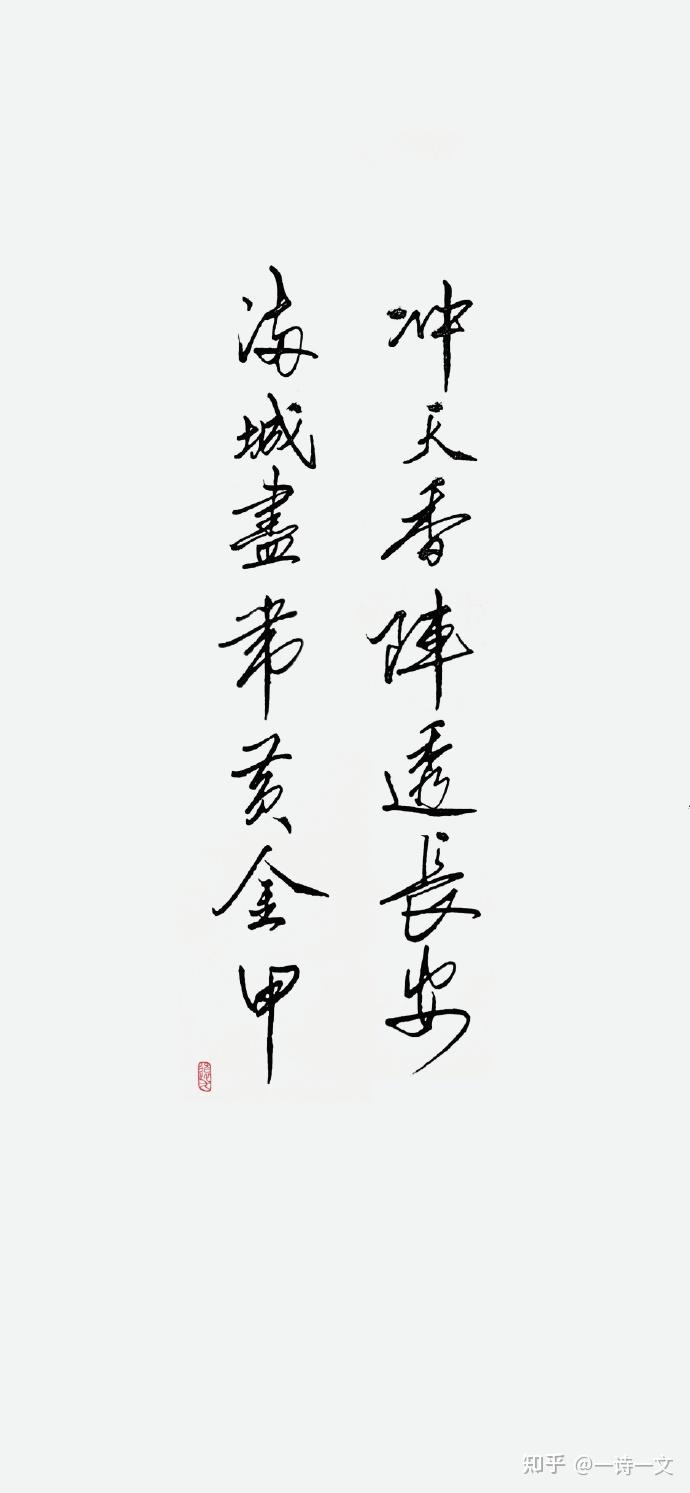 冲天香陣透長安
满城盡带黄金甲
知乎 @一诗一文